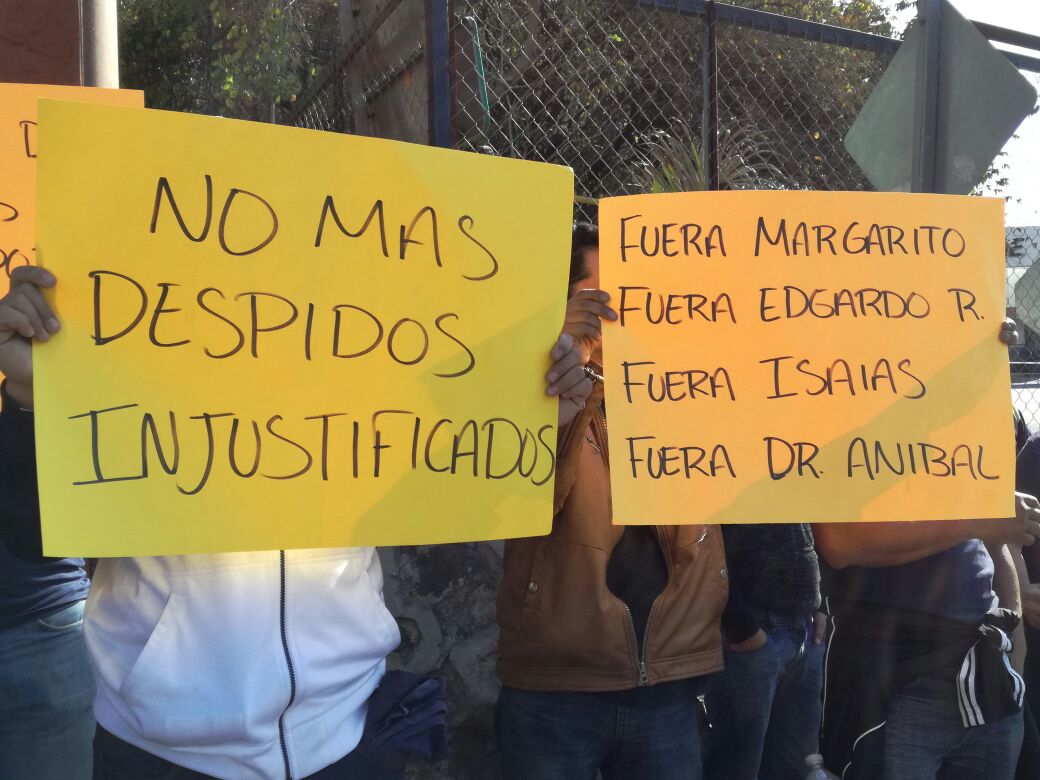 NO MAS
DESPIDOS
INJUSTIFICADOS
FUERA MARGARITO
FUERA EDGARDO R.
FUERA ISAIAS
FUERA DR. ANIBAL